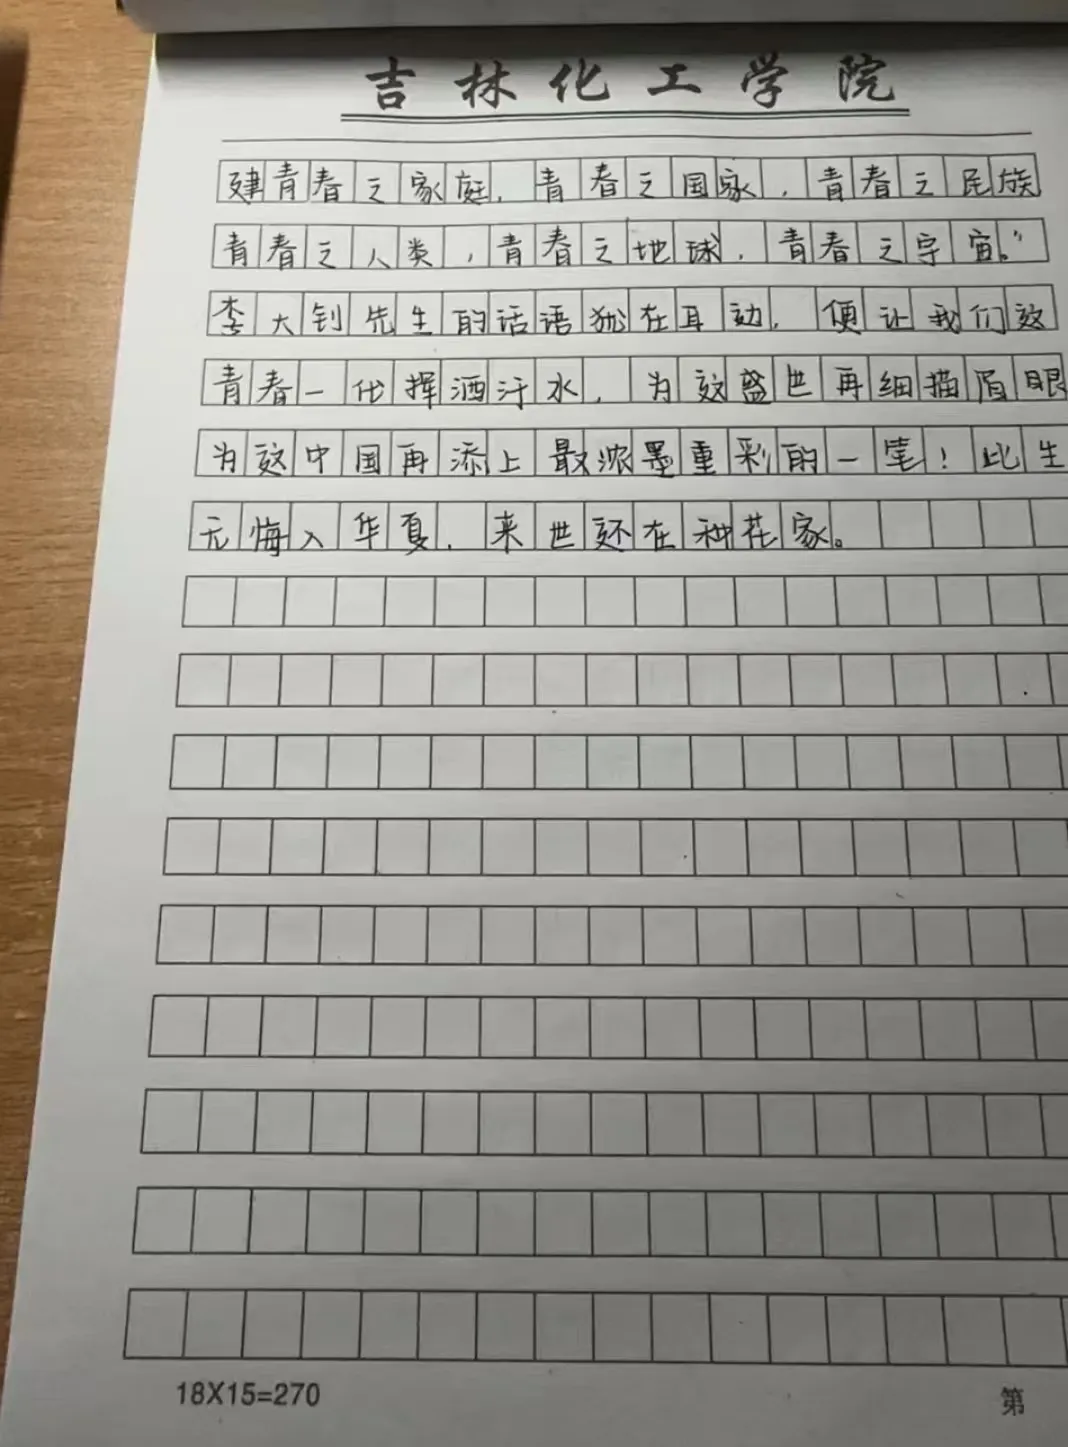 吉林化工学院
建青春之家庭，青春之国家，青春之民族
青春之人类，青春之地球，青春之宇宙。”
李大钊先生的话语犹在耳边，便让我们这
青春一代挥洒汗水，为这盛世再细描眉眼
为这中国再添上最浓墨重彩的一笔！此生
无悔入华夏，来世还在种花家。
18X15=270
第